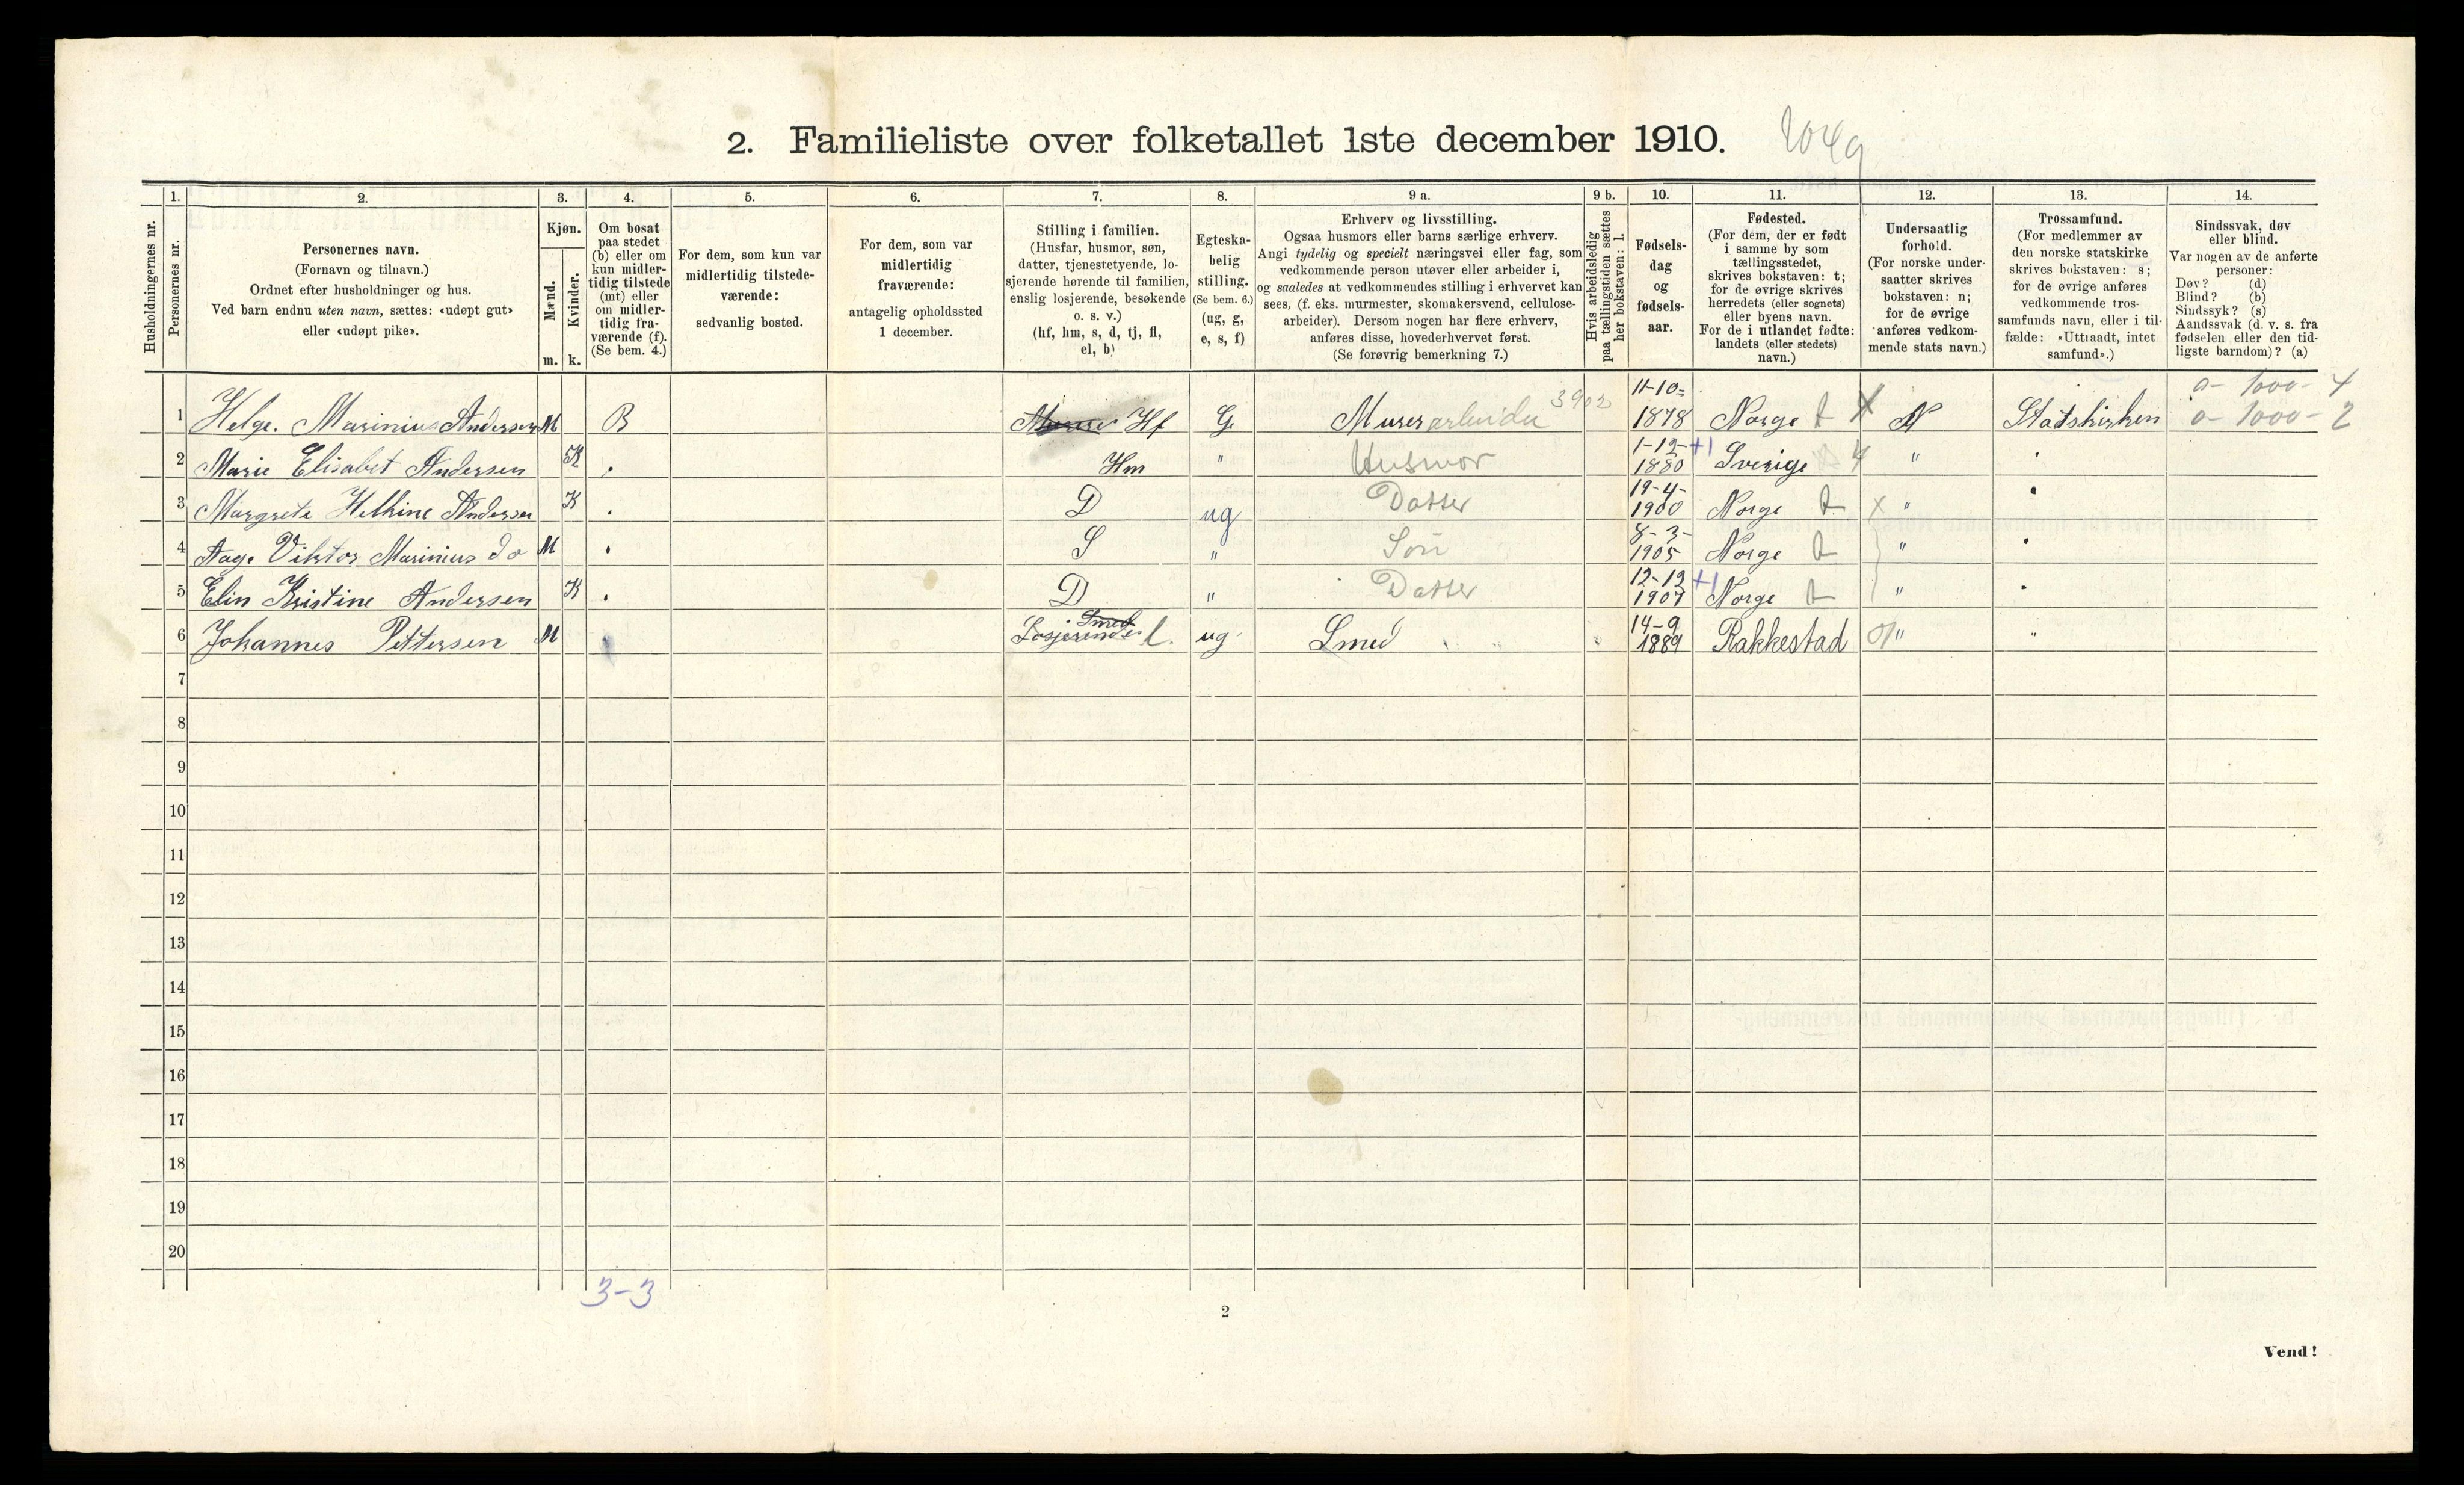 2. Familieliste over folketallet 1ste december 1910.
1049
Husholdningernes nr.
1.
Personernes nr.
2.
Personernes navn.
(Fornavn og tilnavn.)
Ordnet efter husholdninger og hus.
Ved barn endnu uten navn, sættes: «udøpt gut»
eller «udøpt pike».
3.
Kjøn.
Mænd.
m.
Kvinder.
k.
4.
Om bosat
paa stedet
(b) eller om
kun midler-
tidig tilstede
(mt) eller
om midler-
tidig fra-
værende (f).
(Se bem. 4.)
5.
For dem, som kun var
midlertidig tilstede-
værende:
sedvanlig bosted.
6.
For dem, som var
midlertidig
fraværende:
antagelig opholdssted
1 december.
7.
Stilling i familien.
(Husfar, husmor, søn,
datter, tjenestetyende, lo-
sjerende hørende til familien,
enslig losjerende, besøkende
o. s. v.)
(hf, hm, s, d, tj, fl,
el, b)
8.
Egteska-
belig
stilling.
(Se bem. 6.)
(ug, g,
e, s, f)
9 a.
Erhverv og livsstilling.
Ogsaa husmors eller barns særlige erhverv.
Angi tydelig og specielt næringsvei eller fag, som
vedkommende person utøver eller arbeider i,
og saaledes at vedkommendes stilling i erhvervet kan
sees, (f. eks. murmester, skomakersvend, cellulose-
arbeider). Dersom nogen har flere erhverv,
anføres disse, hovederhvervet først.
(Se forøvrig bemerkning 7.)
9 b.
Hvis arbeidsledig
paa tællingstiden sættes
her bokstaven: l.
10.
Fødsels-
dag
og
fødsels-
aar.
11.
Fødested.
(For dem, der er født
i samme by som
tællingsstedet,
skrives bokstaven: t;
for de øvrige skrives
herredets (eller sognets)
eller byens navn.
For de i utlandet fødte:
landets (eller stedets)
navn.)
12.
Undersaatlig
forhold.
(For norske under-
saatter skrives
bokstaven: n;
for de øvrige
anføres vedkom-
mende stats navn.)
13.
Trossamfund.
(For medlemmer av
den norske statskirke
skrives bokstaven: s;
for de øvrige anføres
vedkommende tros-
samfunds navn, eller i til-
fælde: «Uttraadt, intet
samfund».)
14.
Sindssvak, døv
eller blind.
Var nogen av de anførte
personer:
Døv? (d)
Blind? (b)
Sindssyk? (s)
Aandssvak (d. v. s. fra
fødselen eller den tid-
ligste barndom)? (a)
0 - 1000 - 4
1 Helge. Marinius Andersen M B Murer Hf G Murer arbeider 3902 11-10- 1878 Norge t N Statskirken 0 - 1000 - 2
2 Marie Elisabet Andersen K . Hm " Husmor 1-12- 1880 +1 Sverige 4 " .
3 Margrete Andersen K . D ug Datter 19-4- 1900 Norge t x " .
4 Aage Viktor Marinius do M . S " Sön 8-3- 1905 Norge t " .
5 Elin Kristine Andersen K . D " Datter 12-12 1907 +1 Norge t " .
6 Johannes Pettersen M Losjerende Smed l. ug Smed 14-9 1889 Rakkestad 01 " "
7
8
9
10
11
12
13
14
15
16
17
18
19
20
3-3
2
Vend!